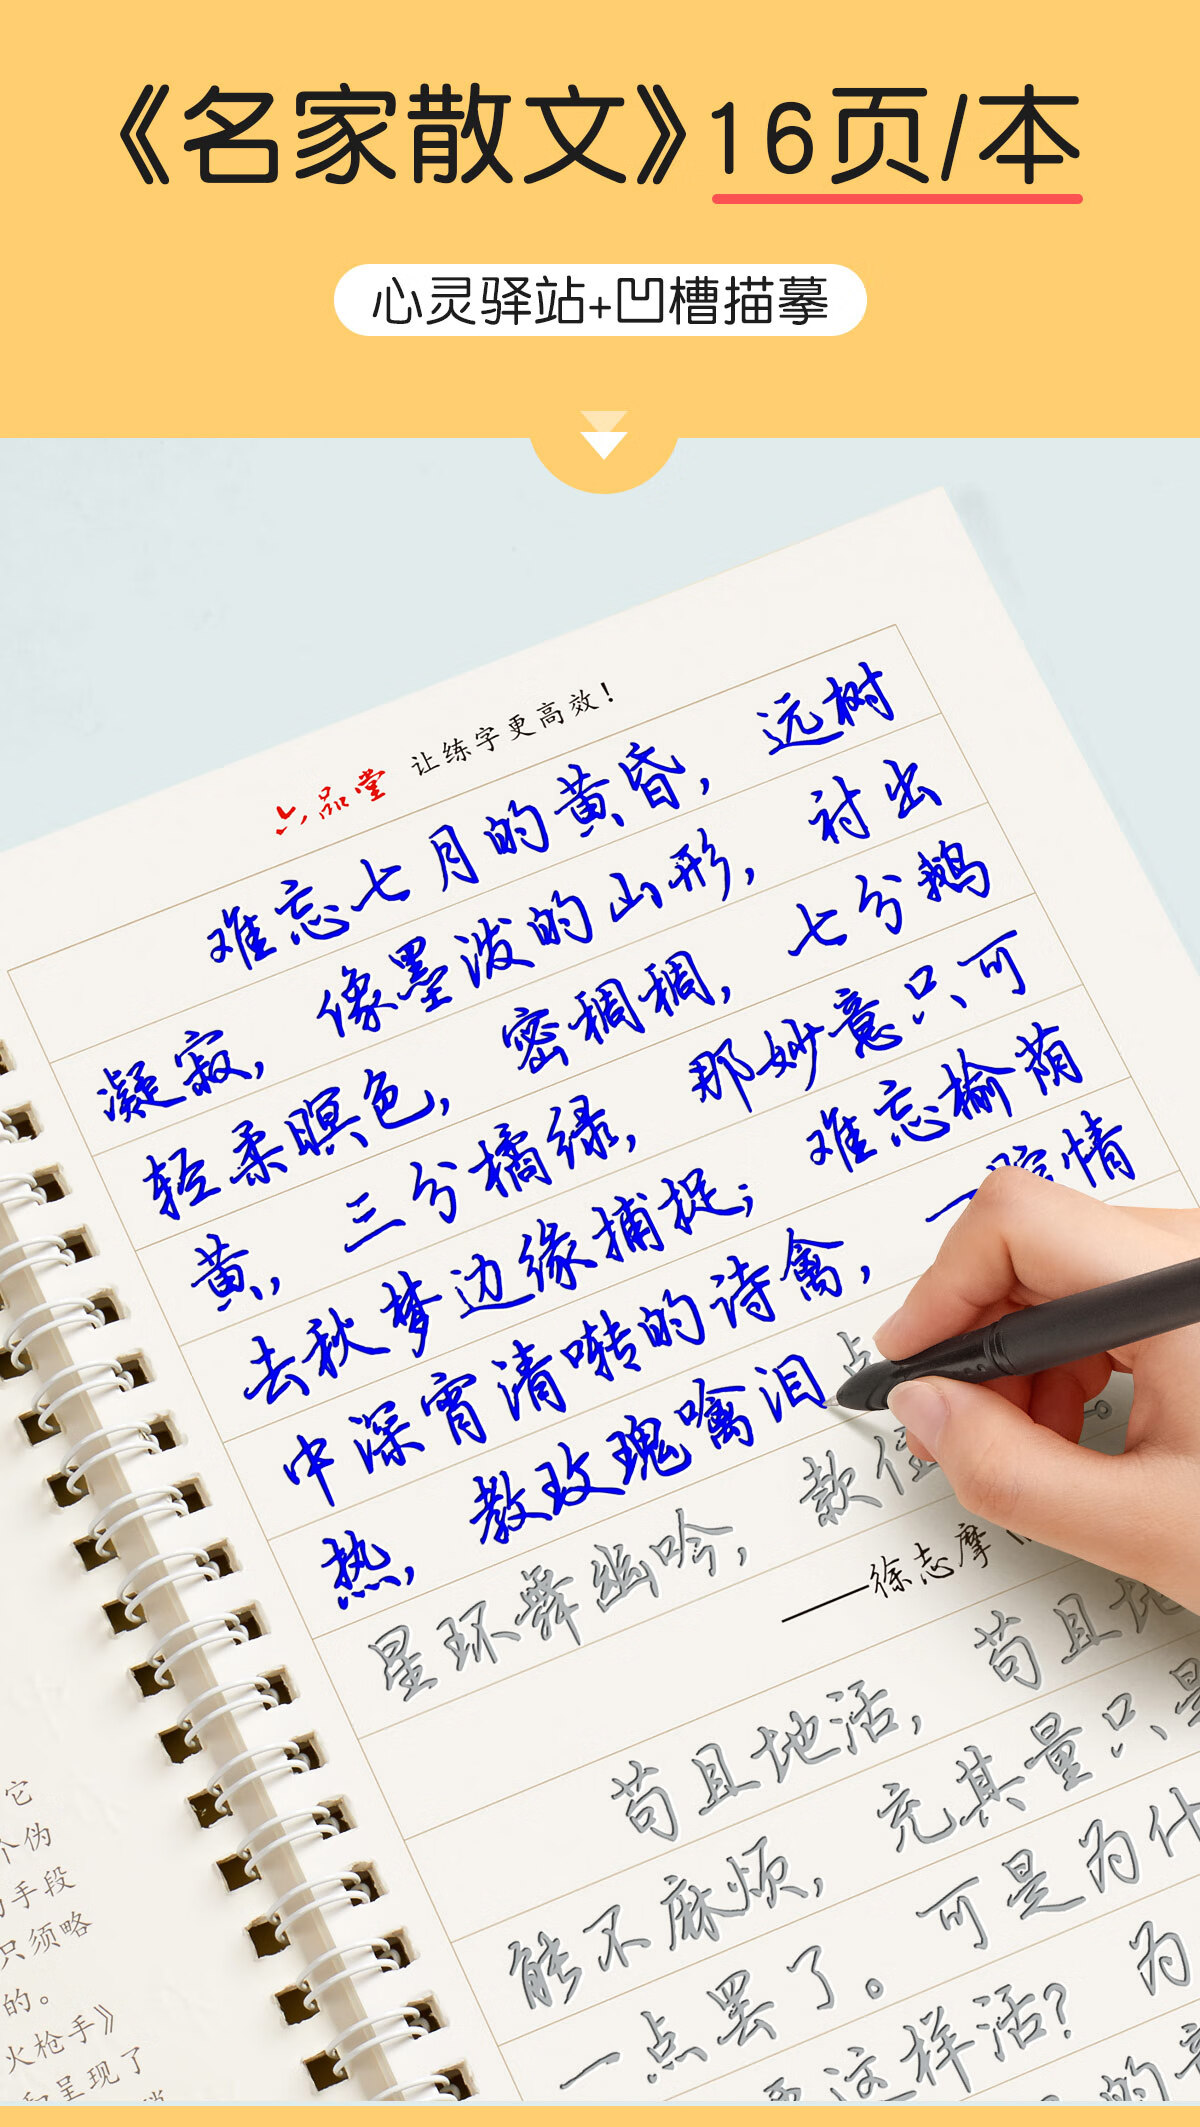 《名家散文》16页/本
心灵驿站+凹槽描摹
六品堂 让练字更高效！
难忘七月的黄昏，远树
凝寂，像墨泼的山形，衬出
轻柔暝色，密稠稠，七分鹅
黄，三分橘绿，那妙意只可
去秋梦边缘捕捉；难忘榆荫
中深宵清啭的诗禽，一腔情
热，教玫瑰噙泪点
星环舞幽吟，款住
——徐志摩
苟且地活，苟且地
能不麻烦，充其量只是
一点罢了。可是为什
这样活？为
的意
它
个伪
手段
只须略
的。
火枪手》
呈现了